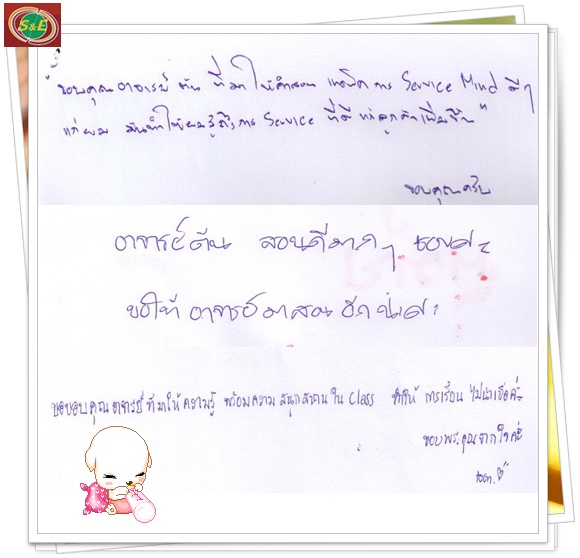 S&E
"ขอบคุณ อาจารย์ ต้น ที่มา ให้คำสอน เทคนิค การ Service Mind ดีๆ
แก่ผม มันทำให้ผมรู้ถึงการ Service ที่ดี แก่ลูกค้าเพิ่มขึ้น"
ขอบคุณครับ
อาจารย์ต้น สอนดีมาก ๆ
ขอให้ อาจารย์มาสอน อีกนะค่ะ
ขอขอบคุณ อาจารย์ ที่มาให้ความรู้ พร้อมความสนุกสนาน ใน Class ทำให้ การเรียน ไม่น่าเบื่อค่ะ
ขอบพระคุณจากใจค่ะ